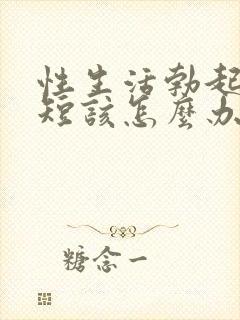 性生活勃起
短該怎麼办
糖念一